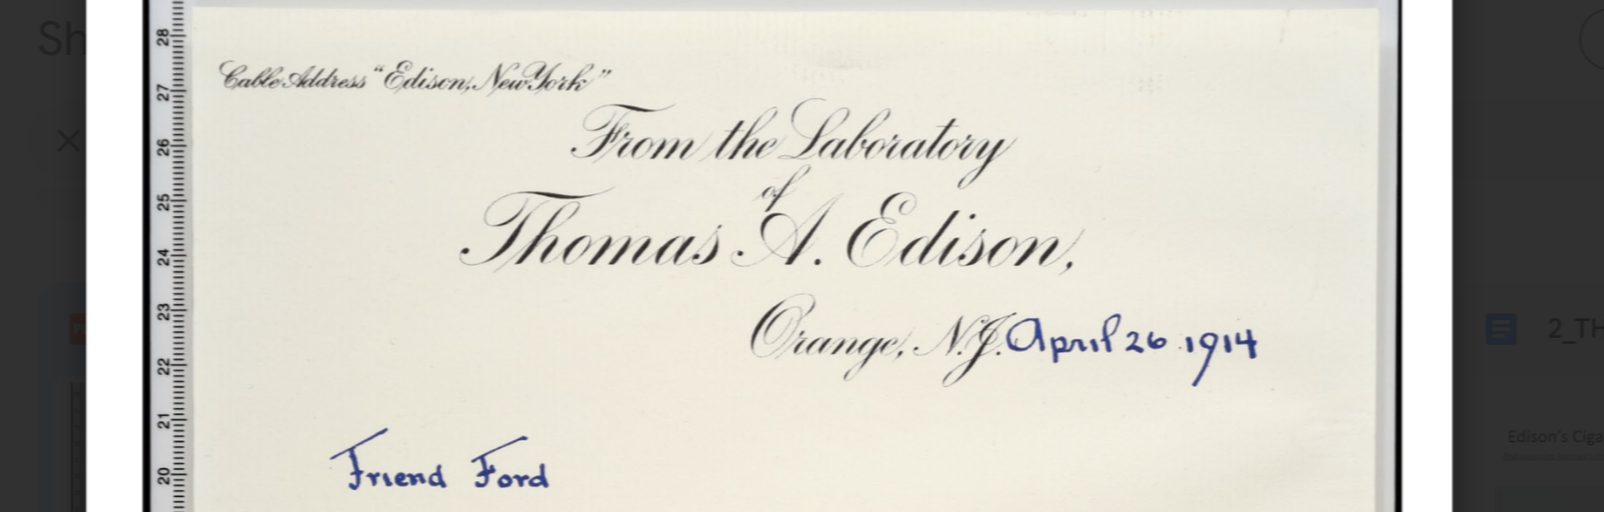 Sh
28
Cable Address "Edison, New York"
27
From the Laboratory
26
of
25
Thomas A. Edison,
24
23
Orange, N.J. April 26 1914
2_TH
22
21
Edison's Ciga
Friend Ford
20